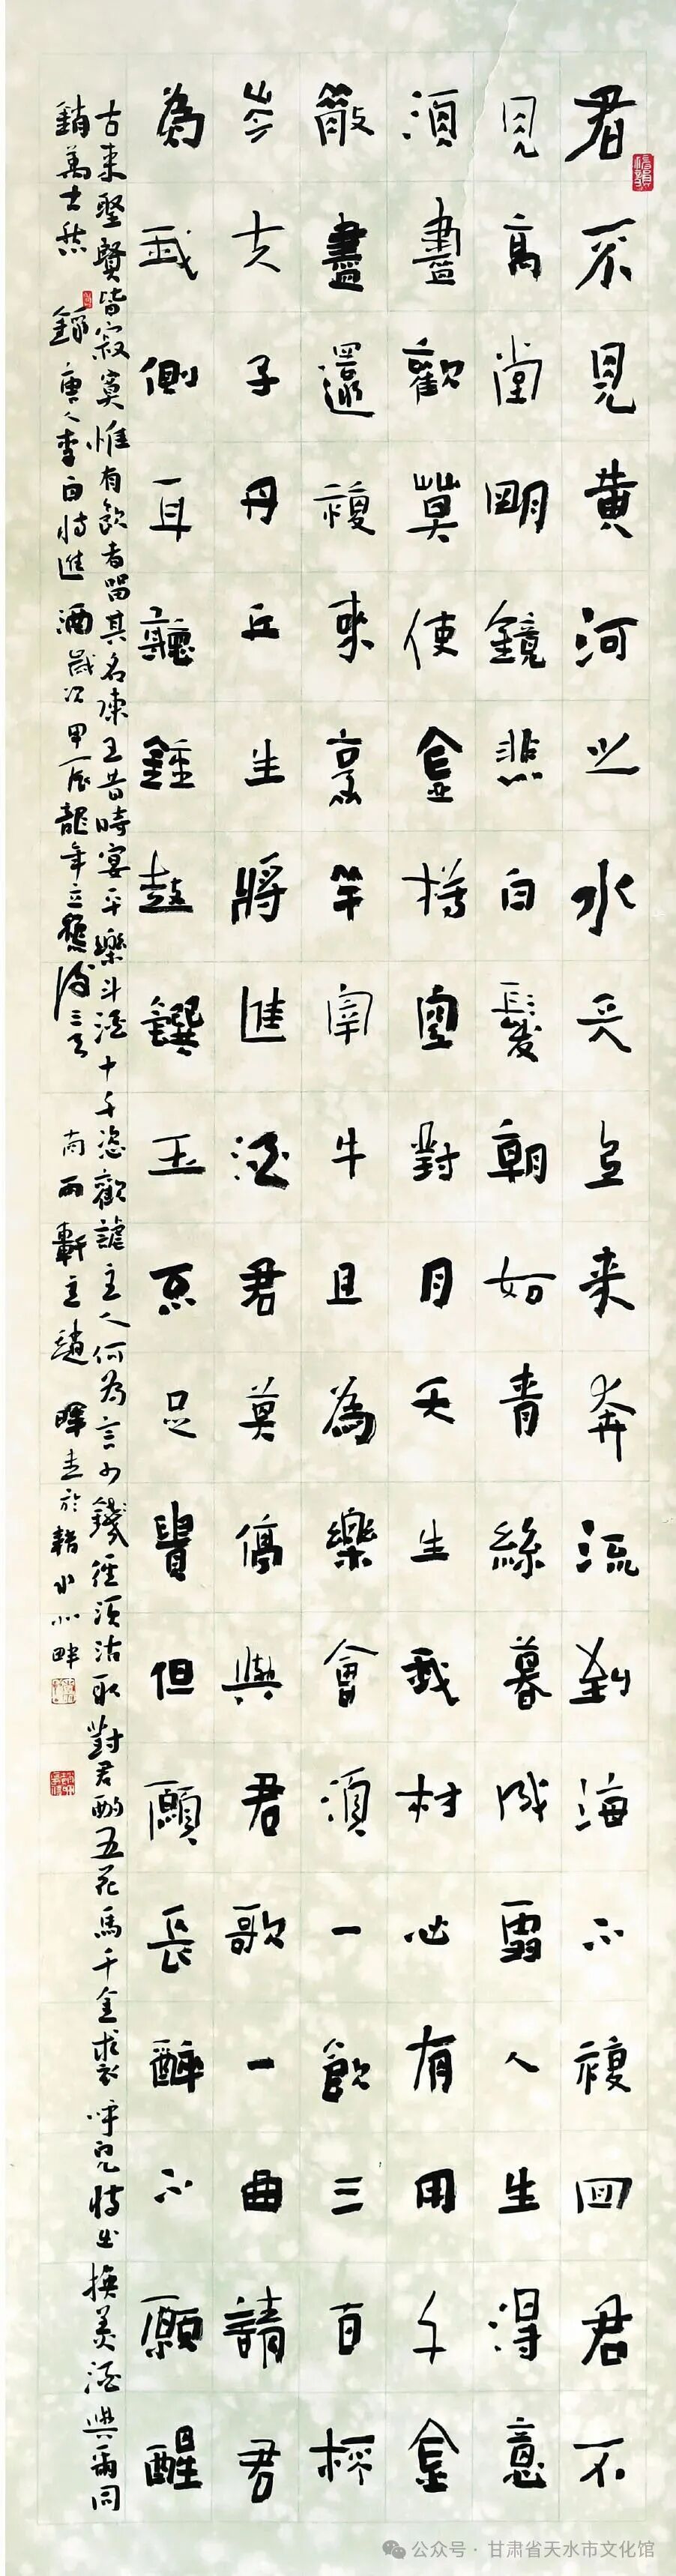 君不見黃河之水天上來奔流到海不復回君不
見高堂明鏡悲白髮朝如青絲暮成雪人生得意
須盡歡莫使金樽空對月天生我材必有用千金
散盡還復來烹羊宰牛且為樂會須一飲三百杯
岑夫子丹丘生將進酒君莫停與君歌一曲請君
為我側耳聽鐘鼓饌玉不足貴但願長醉不願醒
古來聖賢皆寂寞惟有飲者留其名陳王昔時宴平樂斗酒十千恣歡謔主人何為言少錢徑須沽取對君酌五花馬千金裘呼兒將出換美酒與爾同
銷萬古愁 錄唐人李白將進酒歲次甲辰龍年立秋後三天 南雨軒主趙暉書於耤水北畔
公众号·甘肃省天水市文化馆